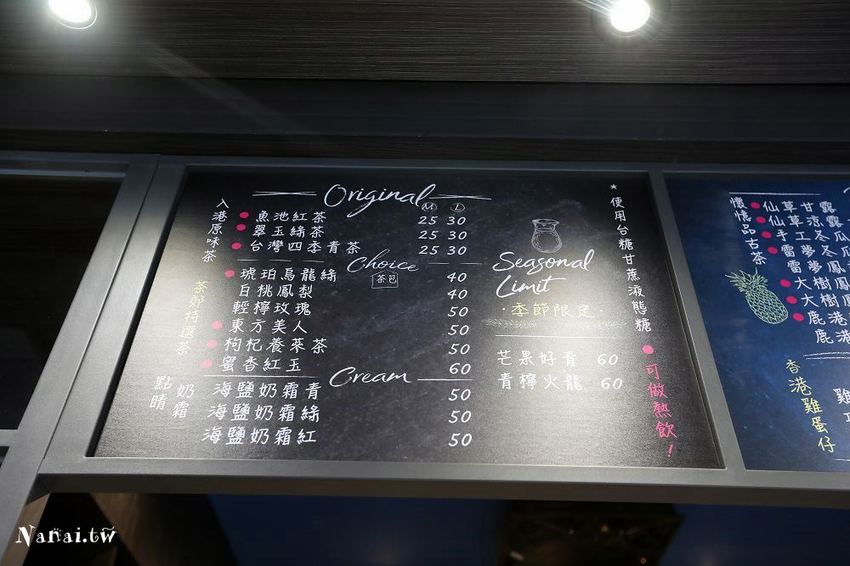 Original
入港原味茶
M L
魚池紅茶 25 30
翠玉綠茶 25 30
台灣四季青茶 25 30
Choice
茶包
茶郊特選茶
琥珀烏龍綠 40
白桃鳳梨 40
輕檸玫瑰 50
東方美人 50
枸杞養菜茶 50
蜜香紅玉 60
Cream
點睛奶霜
海鹽奶霜青 50
海鹽奶霜綠 50
海鹽奶霜紅 50
Seasonal
Limit
·季節限定·
芒果好青 60
青檸火龍 60
*使用台糖甘蔗液態糖
可做熱飲！
懷憶品古茶
仙草甘
仙草凍
手工冬
雷夢冬
雷夢
大樹鳳
大樹
鹿港
鹿港
香港雞蛋仔
Nanai.tw